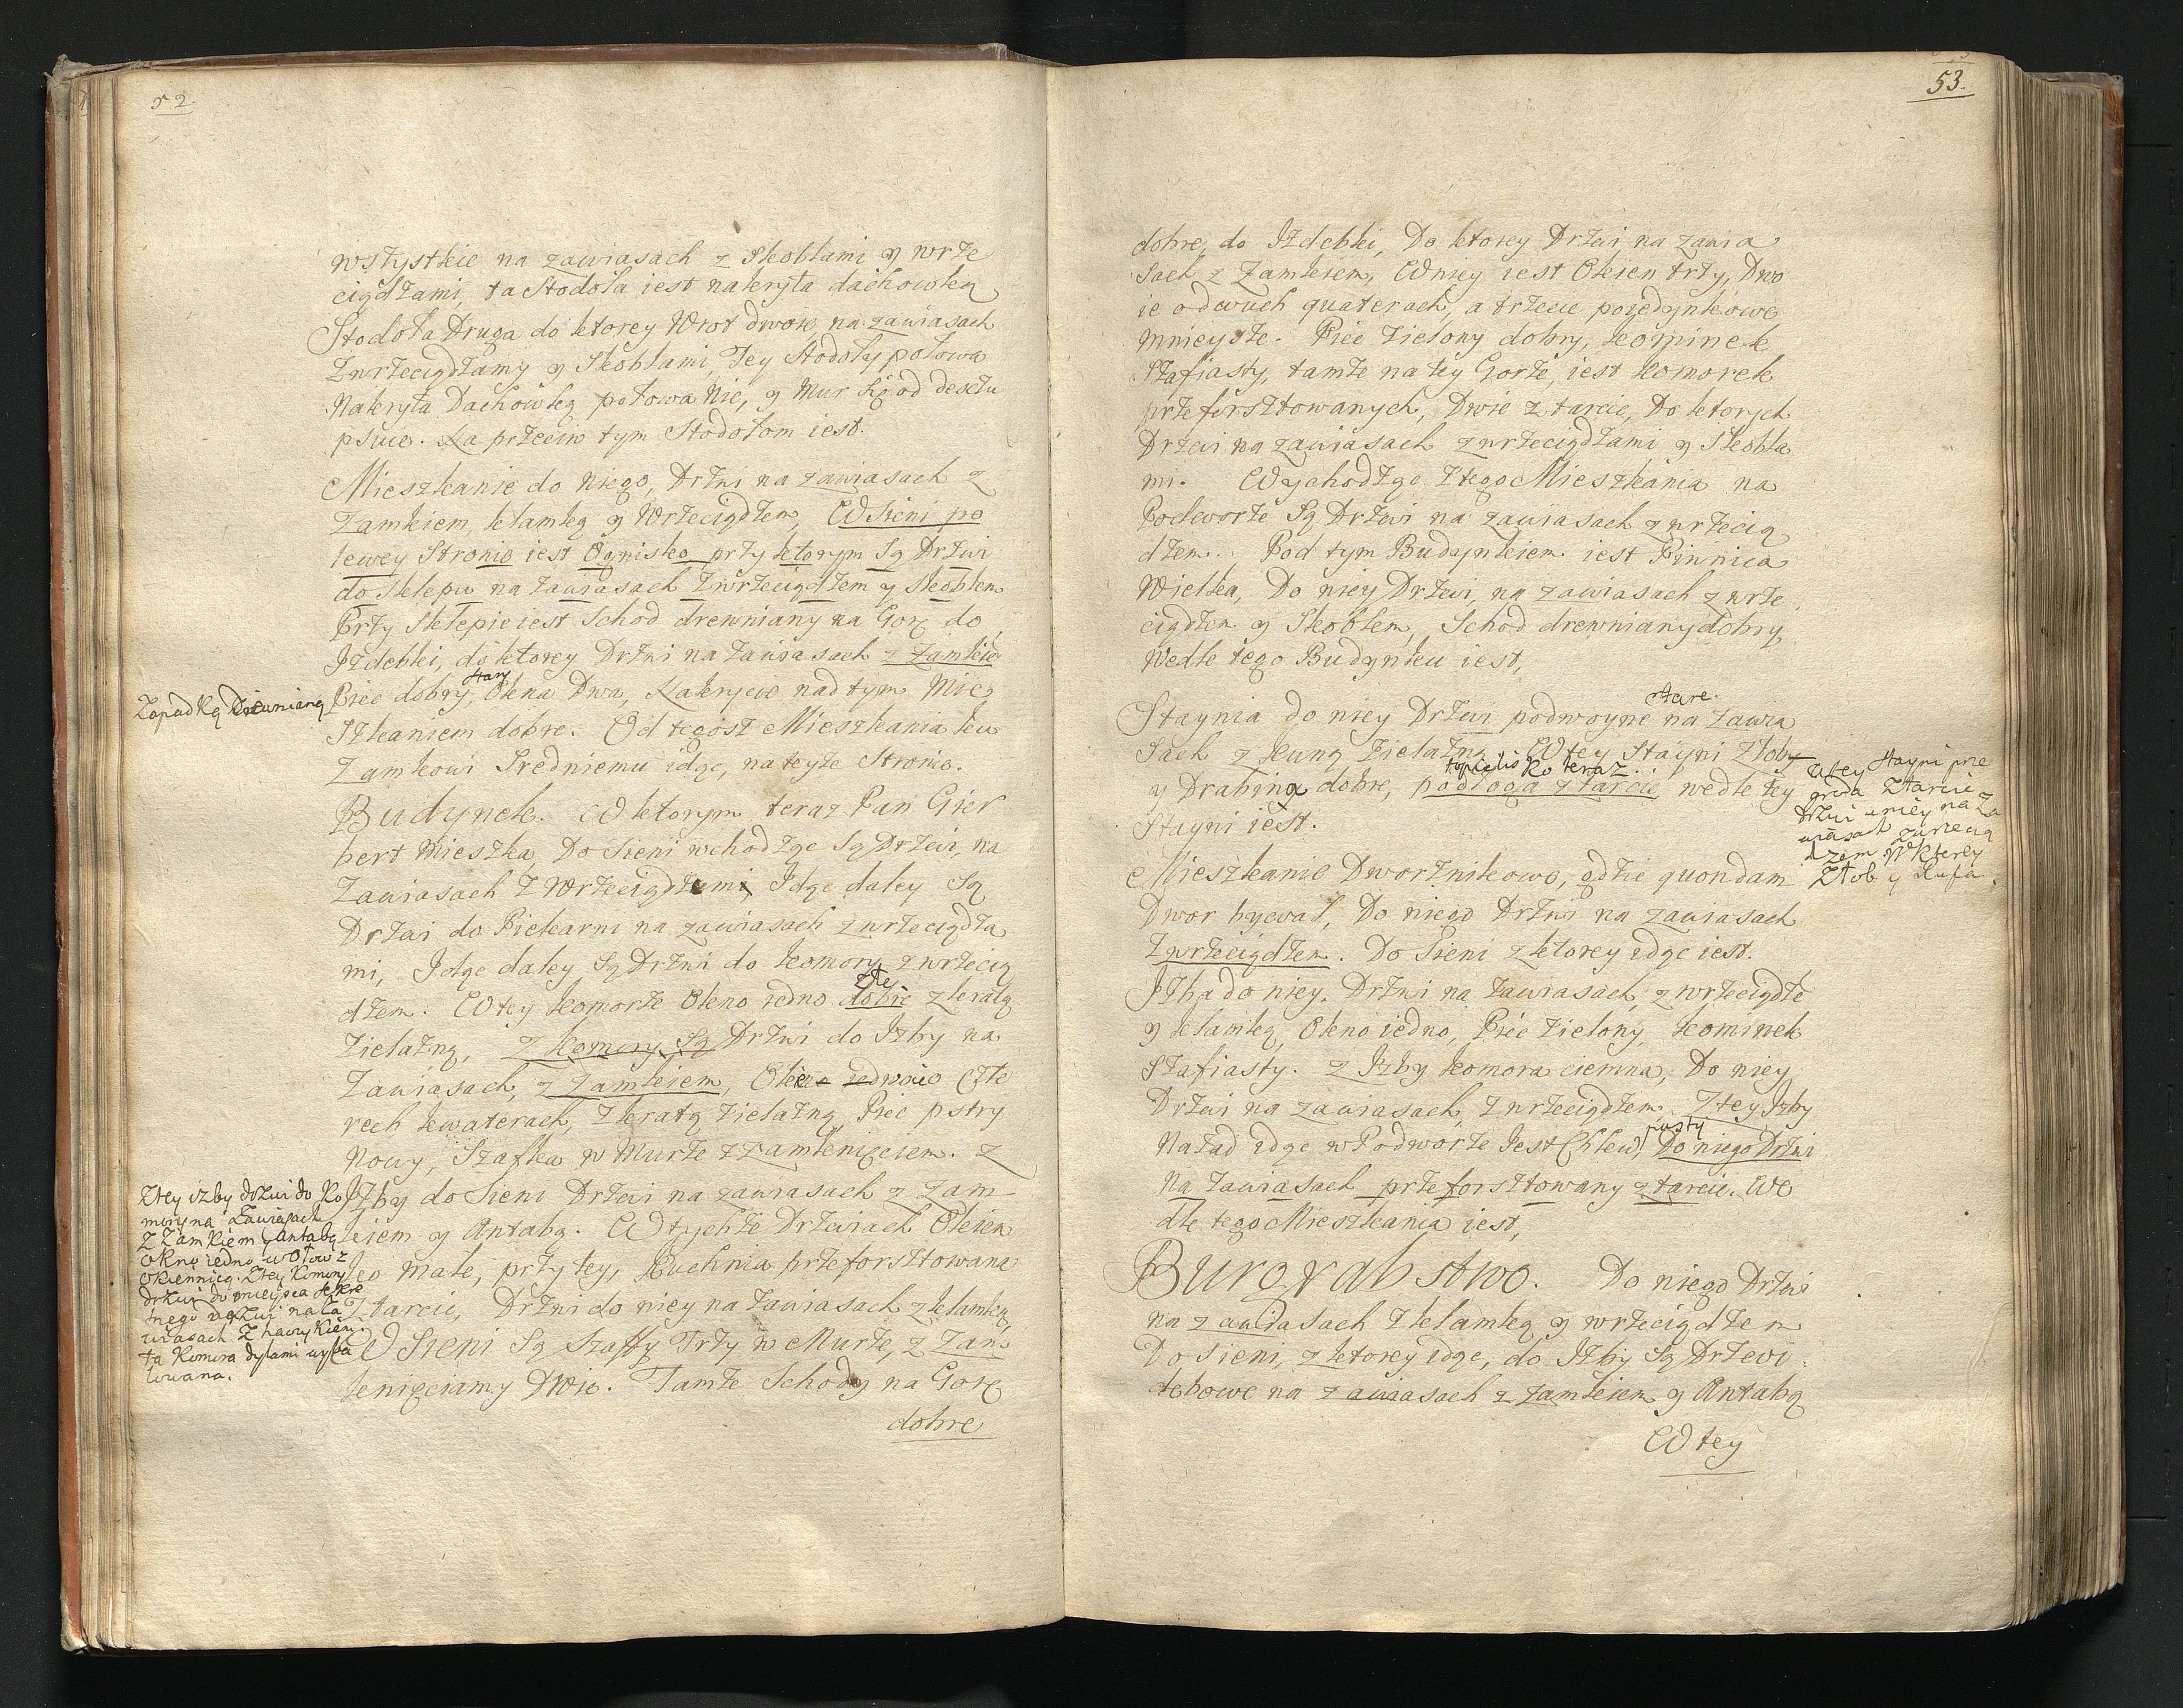 52
wszystkie na zawiasach z Skoblami y wrze
ciądzami, ta Stodoła iest nakryta dachowką
Stodoła Druga do ktorey Wrot dwoie na zawiasach
Zwrzeciądzamy y Skoblami, Tey Stodoły połowa
Nakryta Dachowką połowa Nie, y Mur się od deszczu
psuie. Na przeciw tym Stodołom iest.
Mieszkanie do niego, Drzwi na zawiasach z
Zamkiem, klamką y Wrzeciądzem, W Sieni po
lewey Stronie iest Ognisko przy ktorym są Drzwi
do Sklepu na zawiasach Zwrzeciądzem y Skoblem
Przy Sklepie iest Schod drewniany na Gorę do
Izdebki, do ktorey Drzwi na zawiasach z Zamkie
Zapadką Drewnianą
stary
Piec dobry, Okna Dwa, Nakrycie nad tym Mie
szkaniem dobre. Od tegosz Mieszkania ku
Zamkowi Sredniemu idąc, na teyze Stronie.
Budynek. W ktorym teraz Pan Gier
bert Mieszka, Do Sieni wchodząc Są Drzwi, na
Zawiasach Z Wrzeciądzami, Idąc daley Są
Drzwi do Piekarni na zawiasach zwrzeciądza
mi, Idąc daley Są Drzwi do komory zwrzecią
złe
dzem. W tey komorze Okno iedno dobre z kratą
Zielazną, z komory Są Drzwi do Izby na
Zawiasach, z Zamkiem, Okno iedno o czte
rech kwaterach, z kratą zielazną, Piec pstry
Nowy, Szafka w Murze z zamknięciem. z
Izby do Sieni Drzwi na zawiasach z Zam-
kiem y Antabą. W tychze Drzwiach Okien
ko małe, przy tey, Kuchnia przeforsztowana
Ztarcic, Drzwi do niey na zawiasach z klamką,
W Sieni Są Szaffy Trzy w Murze, z Zam
knięciamy Dwie. Tamze Schody na Gorę
dobre
Ztey izby drzwi do Ko
mory na Zawiasach
Z Zamkiem y antabą
Okno iedno w ołow z
Okiennicą. Ztey Komory
drzwi do mieysca sekre
tnego na za
wiasach Z haczykiem
ta Komora dylami wyba
lowana.
53.
dobre, do Izdebki, Do ktorey Drzwi na zawia
sach z Zamkiem, W niey iest Okien trzy, Dwo
ie o dwuch quaterach, a trzecie poiedynkowe
mnieysze. Piec zielony dobry, kominek
Szafiasty, tamze na tey Gorze, iest komorek
przeforsztowanych, Dwie z tarcic, Do ktorych
Drzwi na zawiasach zwrzeciądzami y Skobla
mi. Wychodząc Z tego Mieszkania na
Podworze Są Drzwi na zawiasach z wrzecią
dzem. Pod tym Budynkiem iest Piwnica
Wielka, Do niey Drzwi, na zawiasach z wrze
ciądzem y Skoblem, Schod drewniany dobry
Wedle tego Budynku iest,
stare
Staynia do niey Drzwi podwoyne na zawia
sach z kuną Zielazną W tey Stayni Złoby
toplisko teraz
y Drabina dobre, podłoga z tarcic, wedle tey
Stayni iest.
Wtey stayni prze
groda Ztarcic
drzwi uniey na Za
wiasach zwrzecią
dzem W ktorey
Złob y Rufa
Mieszkanie Dworznikowo, gdzie quondam
Dwor bywał, Do niego Drzwi na zawiasach
Zwrzeciądzem. Do Sieni z ktorey idąc iest.
Izba do niey, Drzwi na zawiasach, z wrzeciądze
y klamką, Okno iedno, Piec zielony, kominek
Szafiasty. z Izby komora ciemna, Do niey
Drzwi na zawiasach, Zwrzeciądzem, Z tey Izby
pusty
Nazad idąc w Podworze Iest Chlew, Do niego Drzwi
Na zawiasach przeforsztowany z tarcic. We
dle tego Mieszkania iest,
Burgrabstwo. Do niego Drzwi
na zawiasach z klamką y wrzeciądzem
Do Sieni, z ktorey idąc, do Izby Są Drzwi
dębowe na zawiasach z Zamkiem y Antabą
W tey